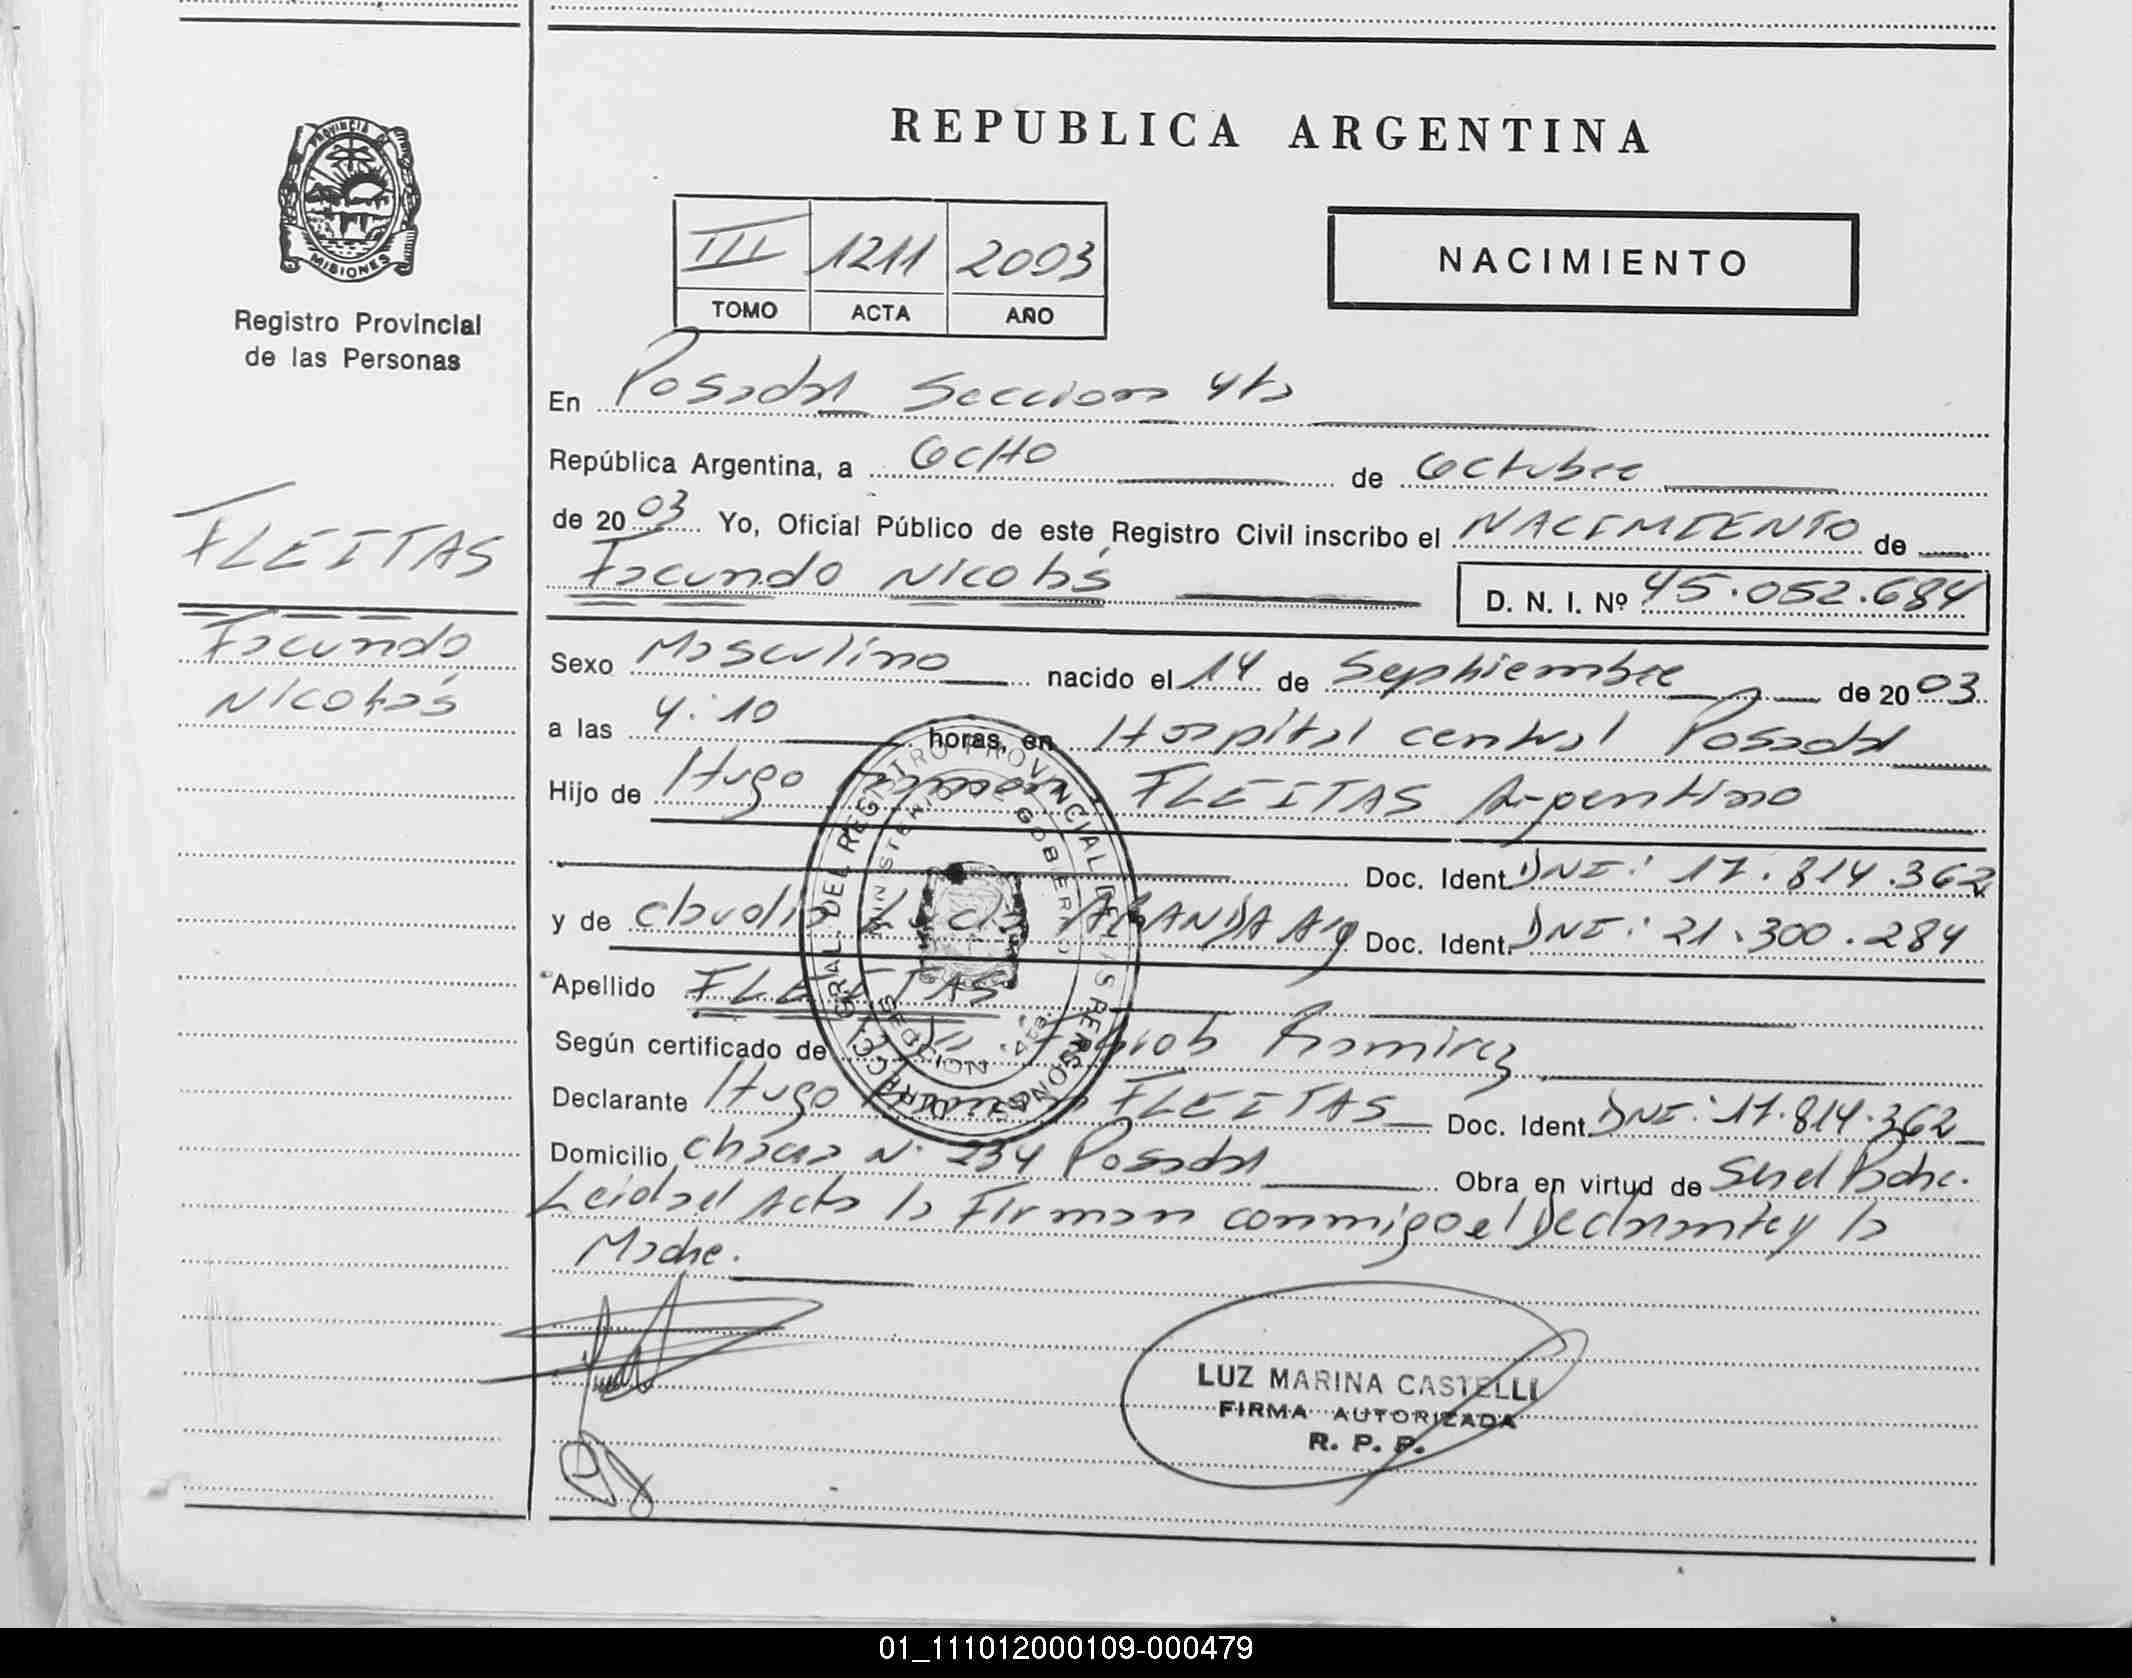 REPUBLICA ARGENTINA
PROVINCIA DE
MISIONES
Registro Provincial
de las Personas
III 1211 2003
TOMO ACTA AÑO
NACIMIENTO
En Posadas Seccion 4ta
República Argentina, a OcHo de Octubre
de 2003 Yo, Oficial Público de este Registro Civil inscribo el NACIMIENTO de
Facundo Nicolás D. N. I. Nº 45.052.684
FLEITAS
Facundo
Nicolás
Sexo Masculino nacido el 14 de Septiembre de 2003
a las 4:10 horas, en Hospital central Posadas
Hijo de Hugo FLEITAS Argentino
Doc. Ident. DNI: 17.814.362
y de Claudia ARANDA Arg Doc. Ident. DNI: 21.300.284
Apellido FLEITAS
Según certificado de Ramirez
Declarante Hugo FLEITAS Doc. Ident. DNI: 17.814.362
Domicilio chacra Nº 234 Posadas Obra en virtud de Ser el Padre.
Leida el Acta la Firman conmigo el Declarante y la
Madre.
DIRECC. GRAL. DEL REGISTRO PROVINCIAL DE LAS PERSONAS
MINISTERIO DE GOBIERNO
SECCION 4ta.
LUZ MARINA CASTELLI
FIRMA AUTORIZADA
R. P. P.
01_111012000109-000479